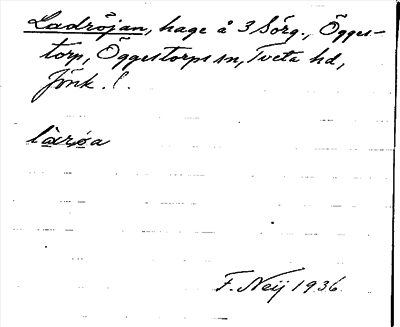 Ladröjan, hage å 3 Sörg., Ögges-
torp, Öggestorps sn, Tveta hd,
Jönk. l.
F. Neij 1936.